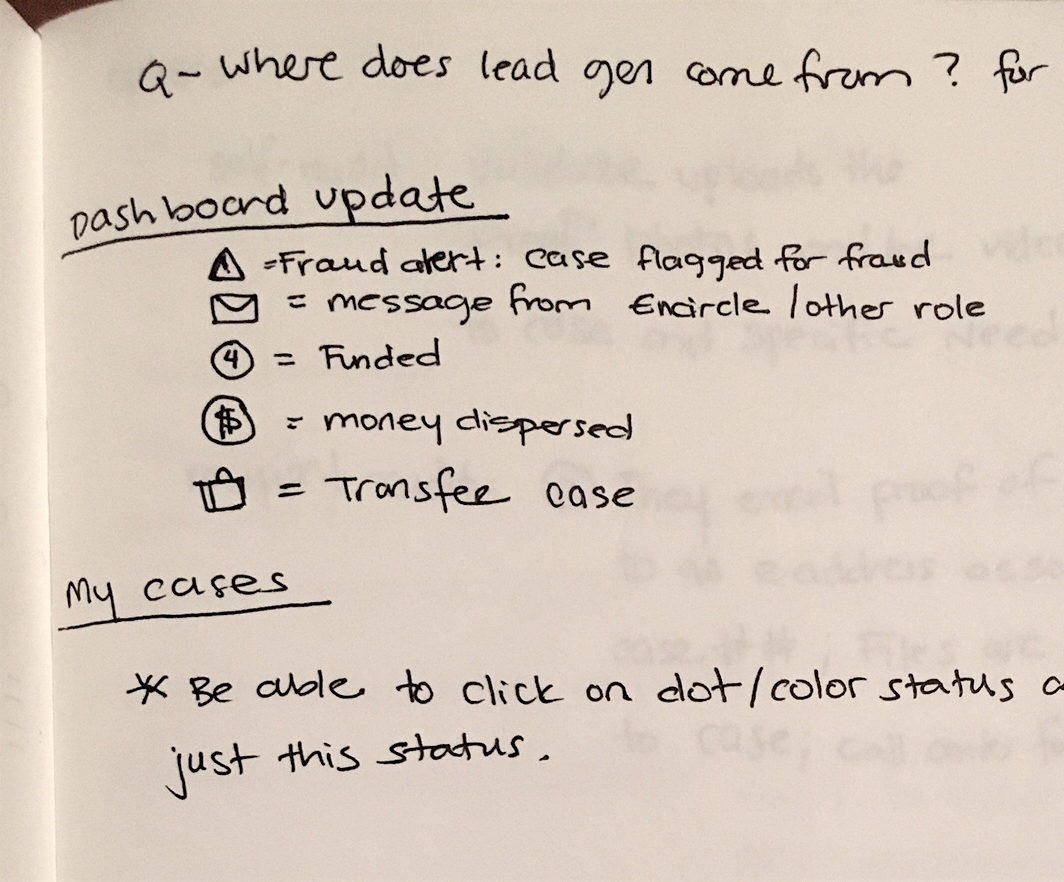 Q- Where does lead gen come from? for
Dashboard update
= Fraud alert: case flagged for fraud
= message from Encircle / other role
④ = Funded
$ = money dispersed
= Transfer case
My cases
* Be able to click on dot/color status
just this status.